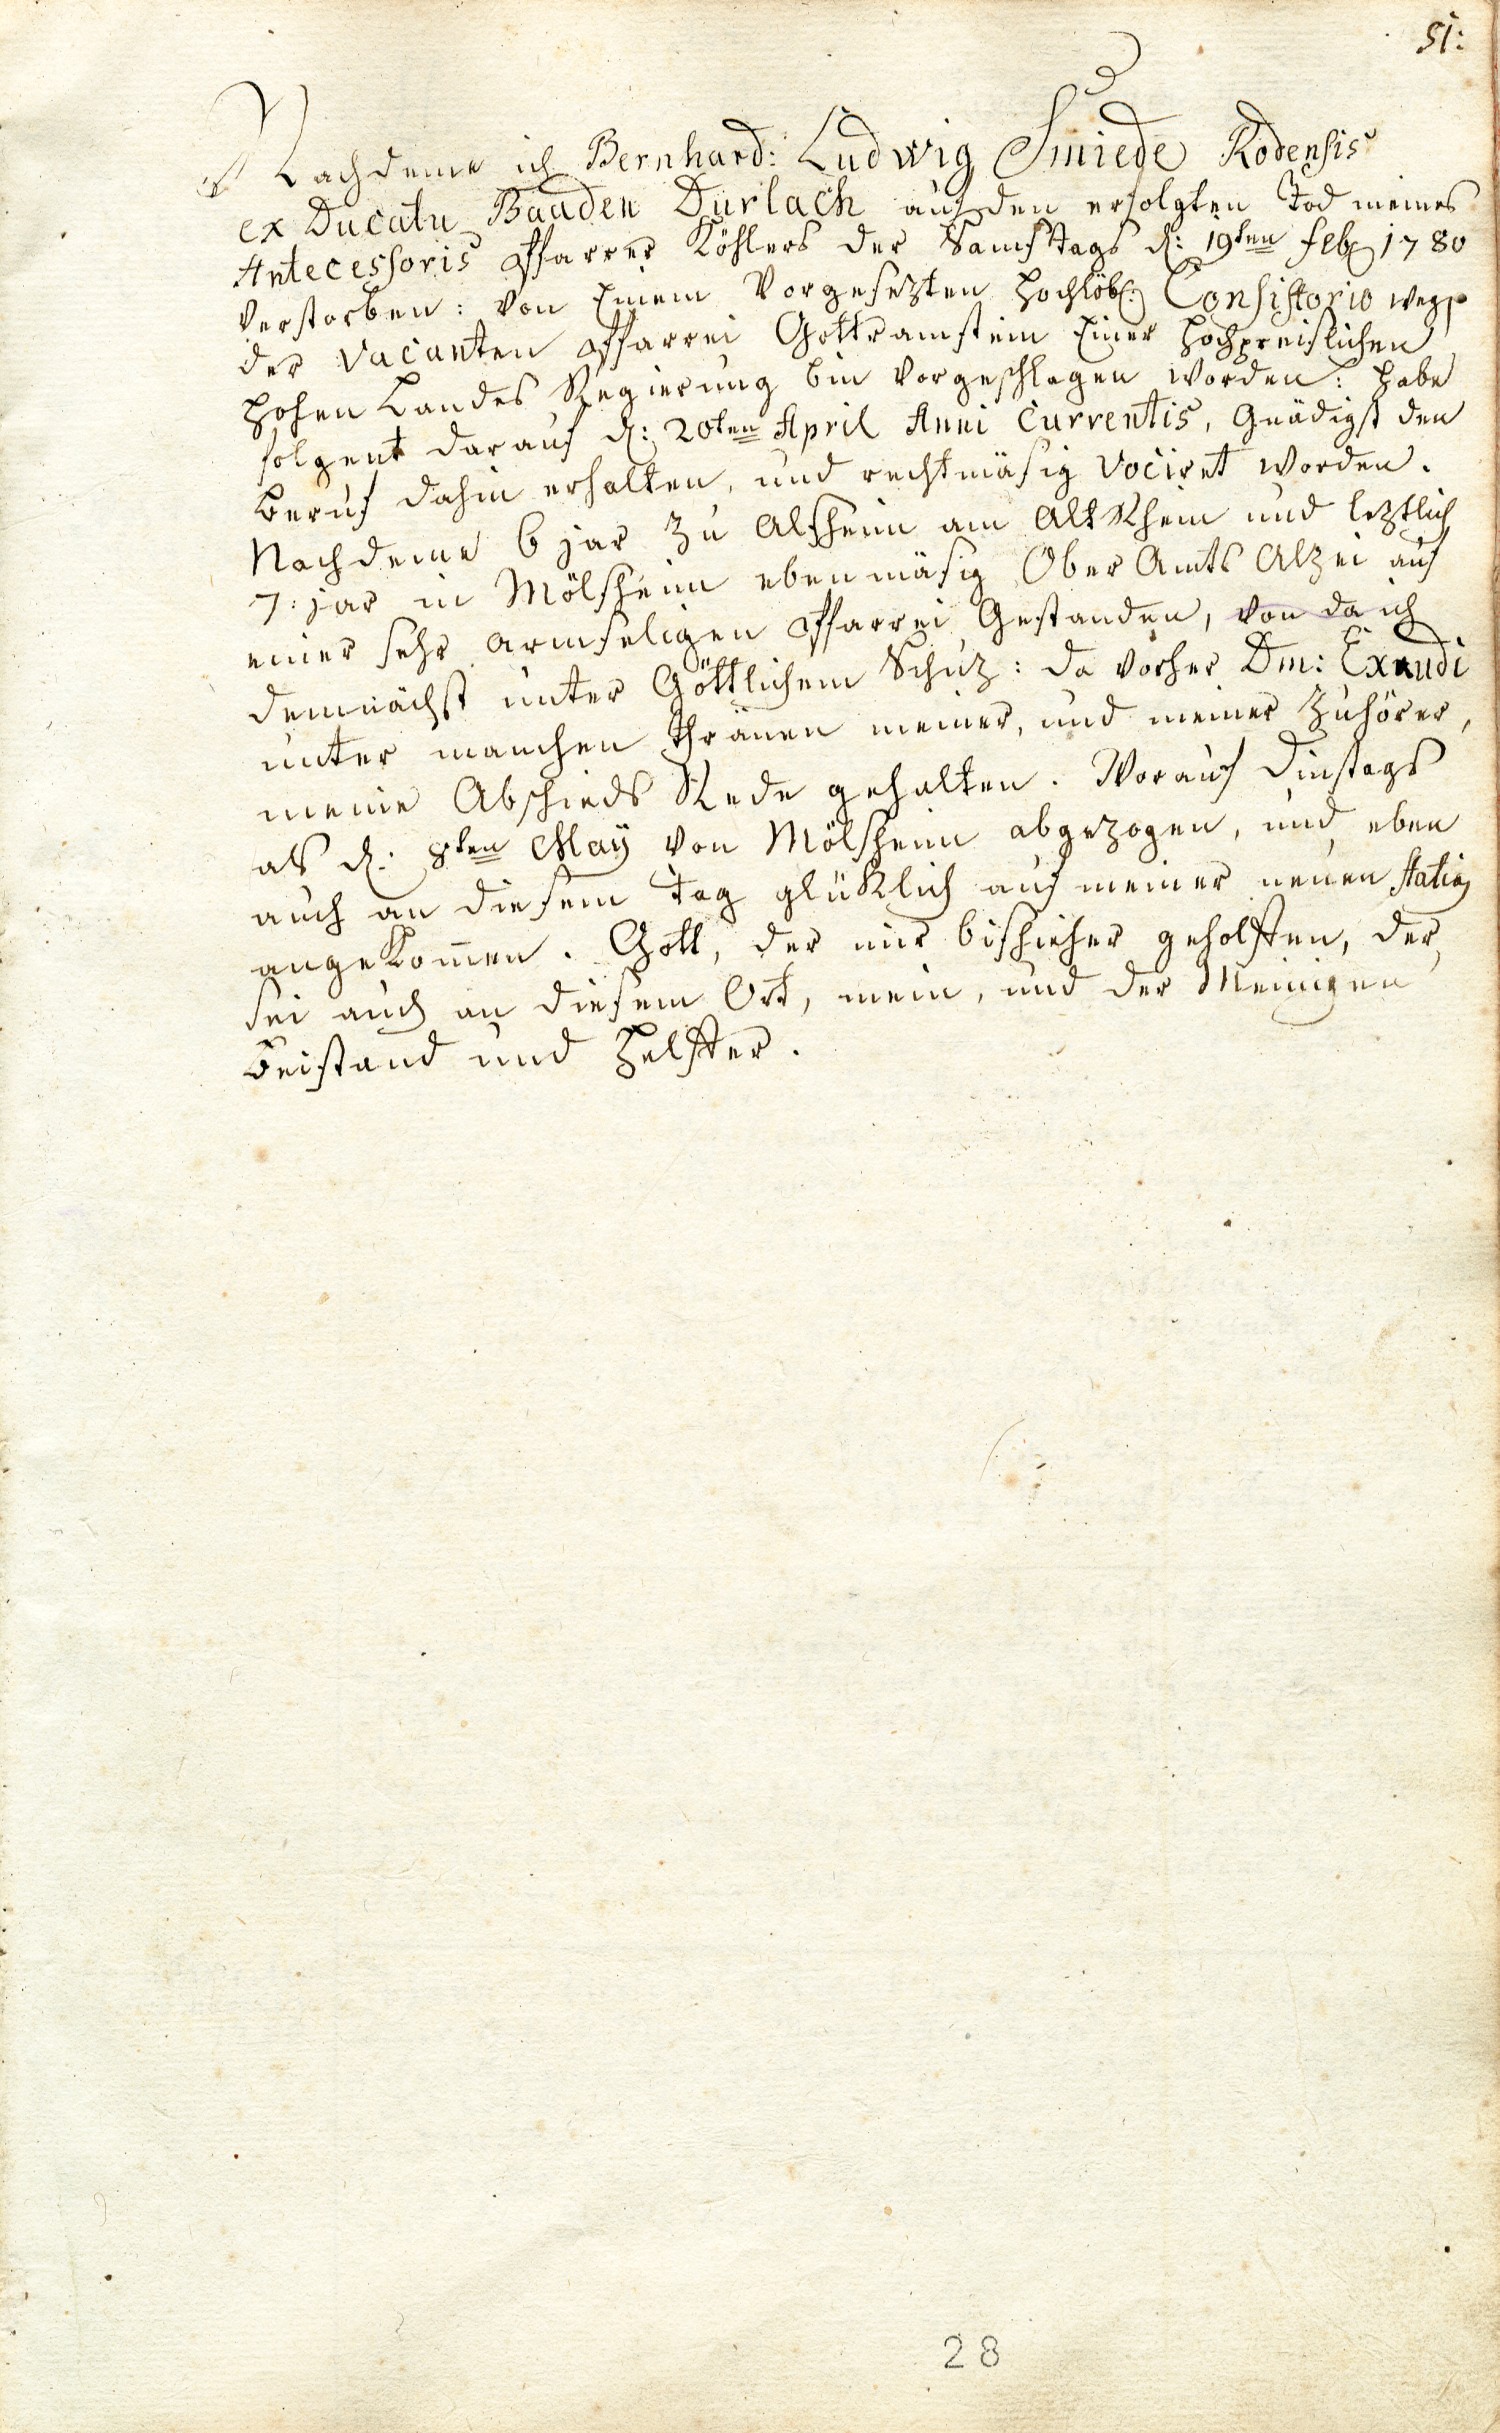 51:
Nachdeme ich Bernhard: Ludwig Smiede Rodensis
ex Ducatu Baaden Durlach auf den erfolgten Tod meines
Antecessoris Pfarrer Köhlers der Samstags d: 19ten Feb 1780
verstorben: von Einem Vorgesezten Hochlöbl: Consistorio wegen
der vacanten Pfarrei Gottramstein Einer Hochpreislichen
Hohen Landes Regierung bin vorgeschlagen worden: habe
folgent darauf d: 20ten April Anni Currentis, Gnädigst den
Beruf dahin erhalten, und rechtmäsig vociret worden.
Nachdeme 6 jar zu Alsheim am Alt Rhein und leztlich
7: jar in Mölsheim ebenmäsig Ober Amts Alzei auf
einer sehr armseligen Pfarrei Gestanden, von da ich
demnächst unter Göttlichem Schuz: da vorher Dm: Exaudi
unter manchen Thränen meiner, und meiner Zuhörer,
meine Abschieds Rede gehalten. Worauf Dinstags
als d: 8ten May von Mölsheim abgezogen, und eben
auch an diesem Tag glüklich auf meiner neuen station
angekom̄en. Gott, der mir bishieher geholffen, der
sei auch an diesem Ort, mein, und der Meinigen
Beistand und Helffer.
28